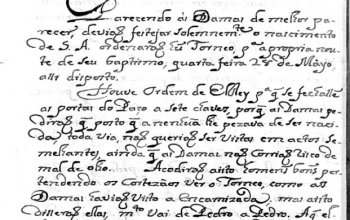 Parecendo ás Damas de melhor pa-
recer, deviaõ festejar solemnem.te o nascimento
de S. A. ordenaraõ hũ Torneo, p.a a propria nou-
te de seu baptismo, quarta feira 25 de Mayo,
assi disposto.
Houve Ordem de ElRey p.a q̃ se fechassē
as portas do Paço a sete claves, porq̃ as Damas pe-
diraõ, q̃ posto q̃ a nenhũa lhe pezava de ser na-
cida, toda via, naõ queriaõ ser vistas em actos se-
melhantes, ainda q̃ as Damas naõ corriaõ risco de
mal de olho. Acodiraõ a isto homens bons per-
tendendo os Cortezaõs ver o Torneo, como as
Damas haviaõ visto a Encamizada; mas a isto
disseraõ ellas, m.to vai de Pedro a Pedro. As el